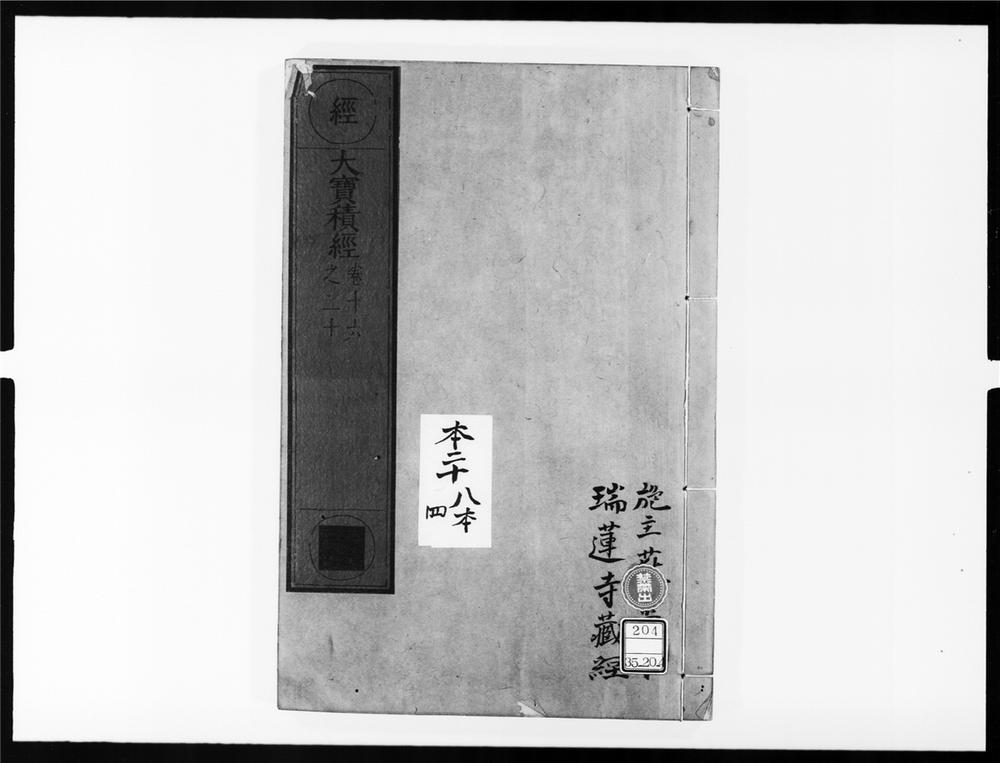 施主
瑞蓮寺藏經
禁帶出
204
35-204
本二十
八本
四
經
大寶積經
卷十六
之二十